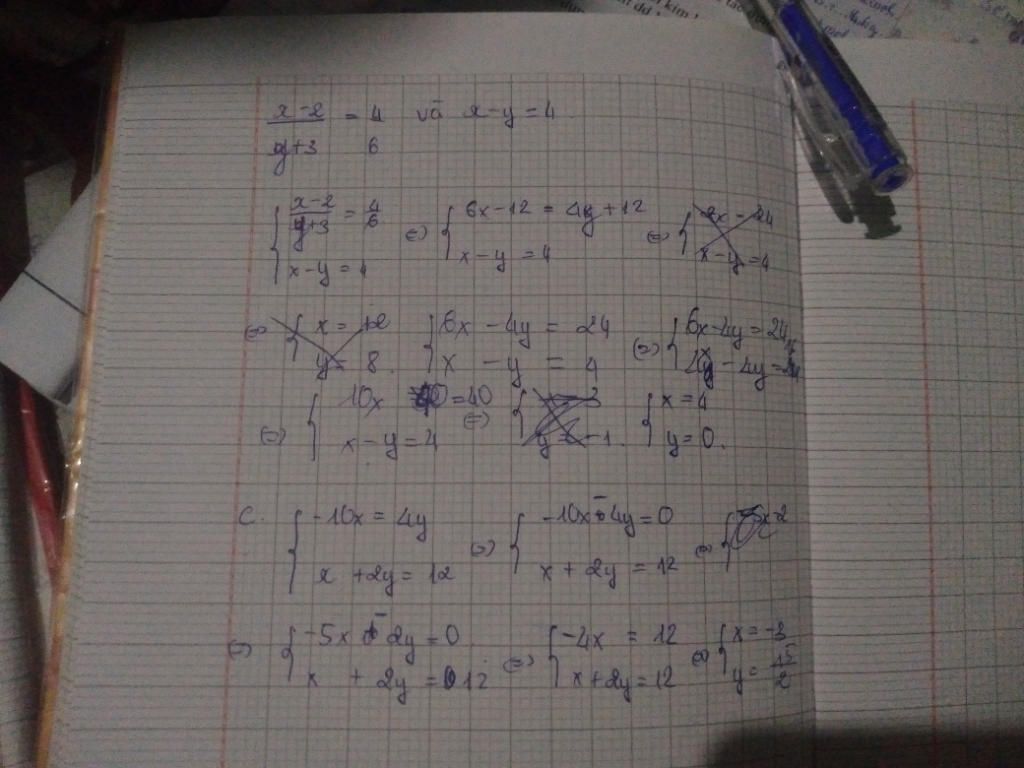 x-2 = 4 và x-y = 4.
y+3 6
x-2 = 4
y+3 6
x-y = 4
⇔ 6x-12 = 4y+12
x-y = 4
⇔
x-y = 4
⇔ x =
y = 8.
6x - 4y = 24
x - y = 4
⇔ 6x-4y = 24
- 4y =
⇔ 10x = 40
x-y = 4
⇔
y = -1.
x = 4
y = 0.
C. -10x = 4y
x +2y = 12
⇔ -10x - 4y = 0
x + 2y = 12
⇔
⇔ -5x - 2y = 0
x + 2y = 12
⇔ -4x = 12
x+2y = 12
⇔ x = -3
y = 15
2